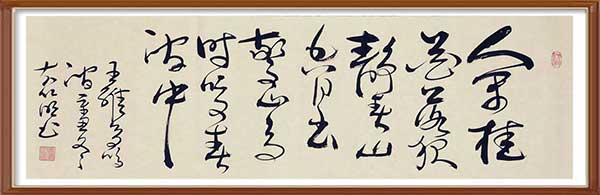 人閒桂
花落夜
靜春山
空月出
驚山鳥
時鳴春
澗中
王維鳥鳴
澗